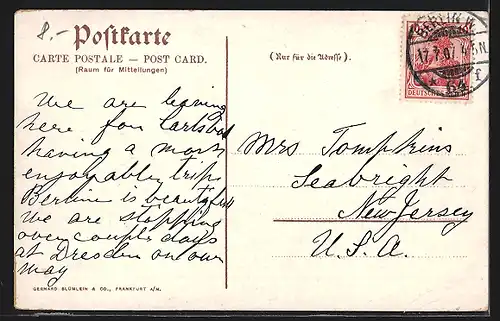 8.-
Postkarte
CARTE POSTALE — POST CARD.
(Raum für Mitteilungen)
(Nur für die Adresse).
BERLIN W.
17.7.07
64
f
DEUTSCHES
We are leaving
here for Carlsbad
having a most
enjoyable trip
Berline is beautiful
we are stopping
over couple days
at Dresden on our
way
Mrs Tompkins
Seabright
New Jersey
U.S.A.
GEBHARD BLÜMLEIN & CO., FRANKFURT A/M.